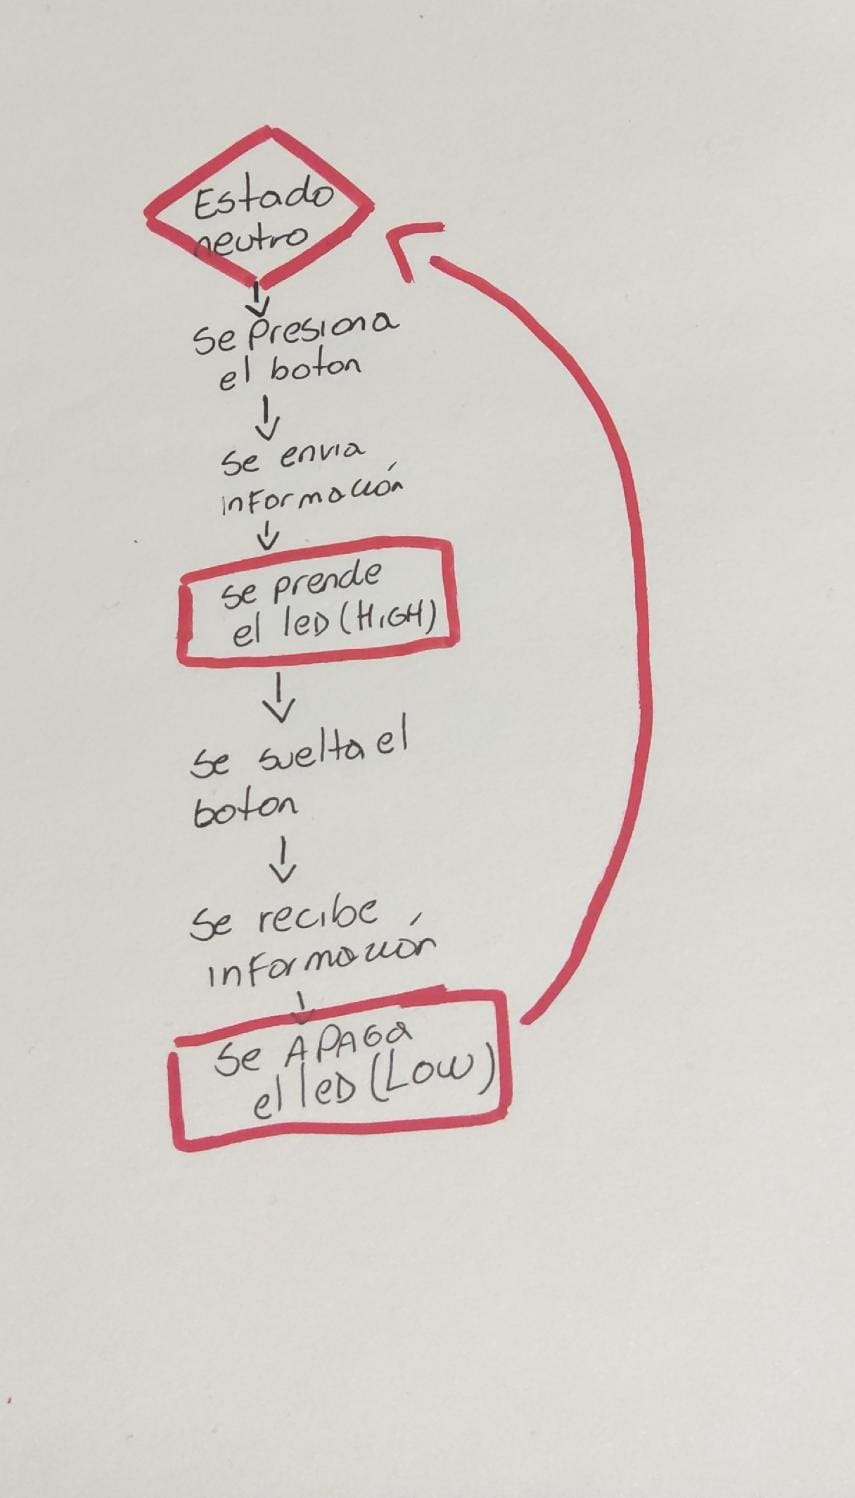 Estado
neutro
Se Presiona
el boton
Se envia
información
Se prende
el leD (HIGH)
Se suelta el
boton
Se recibe
información
Se APAGa
el leD (Low)